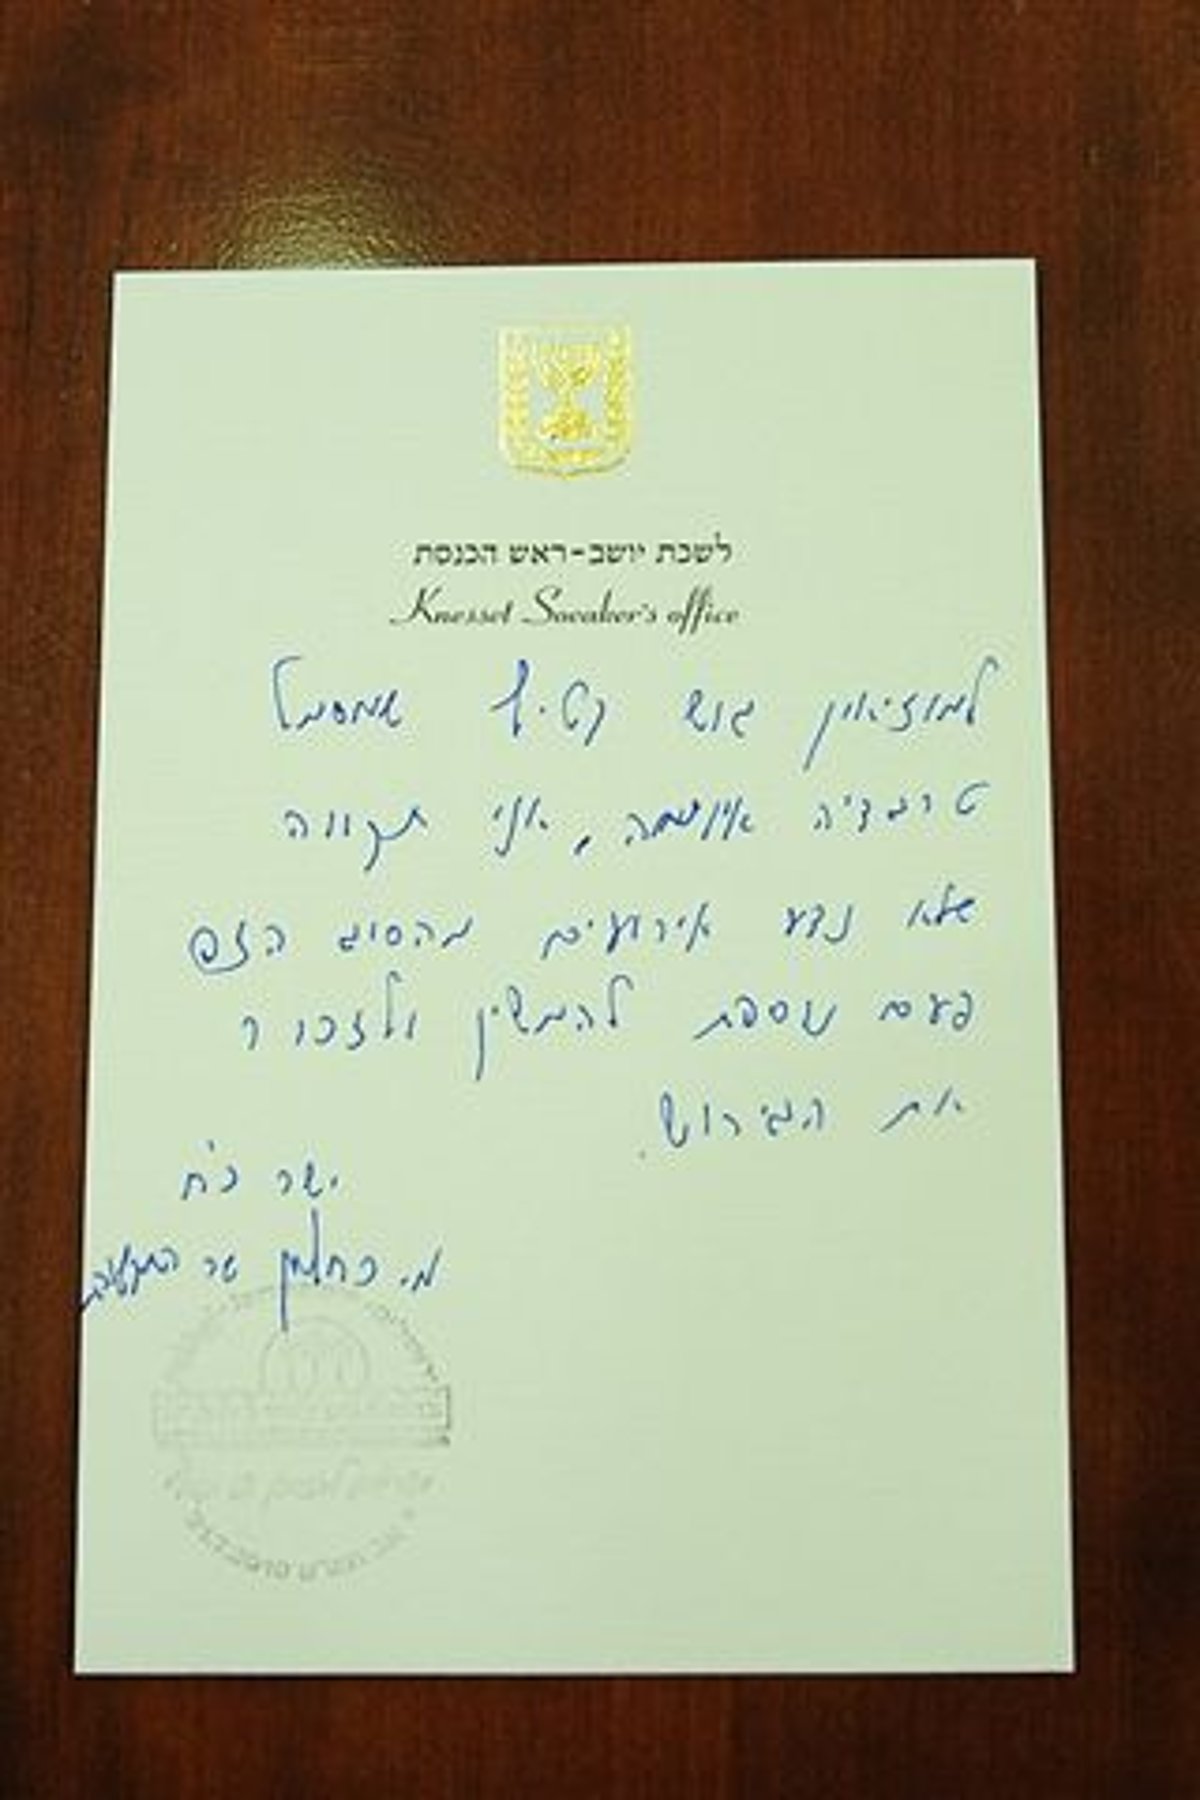 לשכת יושב-ראש הכנסת
Knesset Speaker's office
למוזיאון גוש קטיף שמסמל
טרגדיה איומה, אני תקווה
שלא נדע אירועים מהסוג הזה
פעם נוספת להמשין ולזכור
את הגירוש.
ישר כ"ח
מ. כחלון שר התקשורת